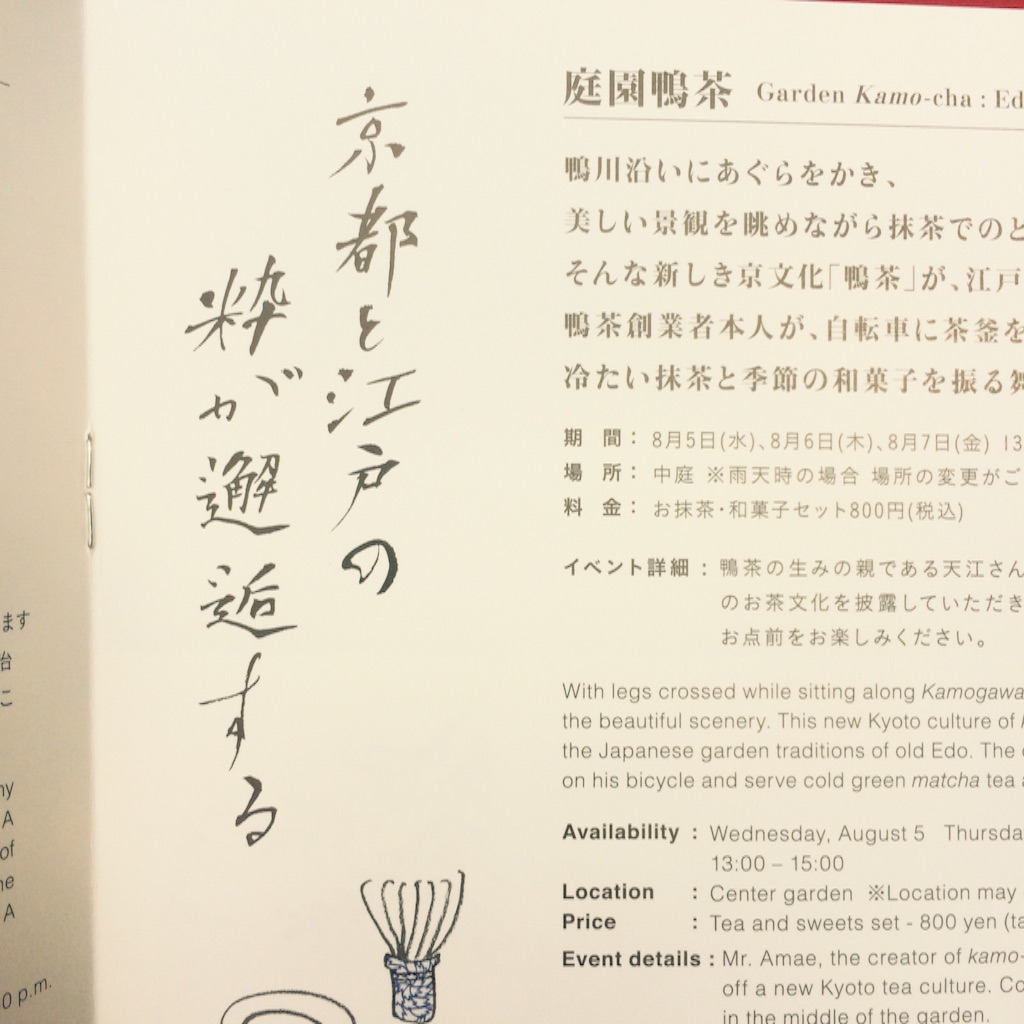 京都と江戸の
粋が邂逅する
庭園鴨茶 Garden Kamo-cha : Ed
鴨川沿いにあぐらをかき、
美しい景観を眺めながら抹茶でのど
そんな新しき京文化「鴨茶」が、江戸
鴨茶創業者本人が、自転車に茶釜を
冷たい抹茶と季節の和菓子を振る舞
期 間：8月5日(水)、8月6日(木)、8月7日(金) 13
場 所：中庭 ※雨天時の場合 場所の変更がご
料 金：お抹茶・和菓子セット800円(税込)
イベント詳細：鴨茶の生みの親である天江さん
のお茶文化を披露していただき
お点前をお楽しみください。
With legs crossed while sitting along Kamogawa
the beautiful scenery. This new Kyoto culture of
the Japanese garden traditions of old Edo. The
on his bicycle and serve cold green matcha tea
Availability : Wednesday, August 5 Thursda
13:00 – 15:00
Location : Center garden ※Location may
Price : Tea and sweets set - 800 yen (ta
Event details : Mr. Amae, the creator of kamo-
off a new Kyoto tea culture. Co
in the middle of the garden.
ます
治
こ
ny
A
of
ne
A
0 p.m.